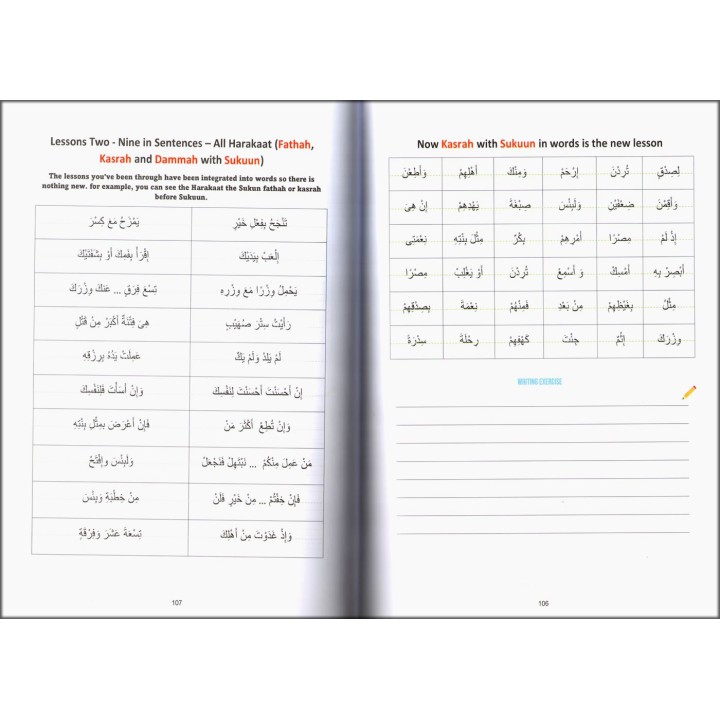 Now Kasrah with Sukuun in words is the new lesson
لِصِدْقٍ تُرِدْنَ إِرْحَمْ وَمِنْكَ أَهْلِهِمْ وَأَطِعْنَ
وَأَقِمْنَ ضِعْفَيْنِ وَلَبِئْسَ صِبْغَةَ يَهْدِهِمْ إِنْ هِىَ
إِذْ لَمْ مِصْرًا أَمْرِهِمْ بِكْرٌ مِثْلَ بِنْتِهِ نِعْمَتِى
أَبْصِرْ بِهِ أَمْسِكْ وَ أَسْمِعْ تُرِدْنَ أَوْ يَغْلِبْ مِصْرًا
مِثْلُ بِغَيْظِهِمْ مِنْ بَعْدِ فَمِنْهُمْ نِعْمَةَ بِصِدْقِهِمْ
وِزْرَكَ إِثْمٌ جِئْتَ كَهْفِهِمْ رِحْلَةَ سِدْرَةَ
WRITING EXERCISE
106
Lessons Two - Nine in Sentences – All Harakaat (Fathah,
Kasrah and Dammah with Sukuun)
The lessons you've been through have been integrated into words so there is
nothing new. for example, you can see the Harakaat the Sukun fathah or kasrah
before Sukuun.
تَنْجَحُ بِفِعْلِ خَيْرٍ يَمْزَحُ مَعَ كِسْرَ
إِلْعَبْ بِيَدَيْكَ اِقْرَأْ بِفَمِكَ أَوْ بِشَفَتَيْكَ
يَحْمِلُ وِزْرًا مَعَ وِزْرِهِ تِسْعَ فِرَقٍ ... عَنكَ وِزْرَكَ
رَأَيْتُ سِتْرَ صُهَيْبٍ هِىَ فِتْنَةٌ أَكْبَرُ مِنْ قَتْلٍ
لَمْ يَلِدْ وَلَمْ يَكُ عَمِلَتْ يَدُهُ بِرِزْقِهِ
إِنْ أَحْسَنْتَ أَحْسَنْتَ لِنَفْسِكَ وَإِنْ أَسَأْتَ فَلِنَفْسِكَ
وَإِنْ تُطِعْ أَكْثَرَ مَنْ فَإِنْ أَعْرَضَ بِمِثْلِ بِنْتِهِ
مَنْ عَمِلَ مِنْكُمْ ... نَبْتَهِلْ فَنَجْعَلْ وَلَبِئْسَ وافْتَحْ
فَإِنْ خِفْتُمْ ... مِنْ خَيْرٍ فَلَنْ مِنْ خِطْبَةِ وَبِئْسَ
وَإِذْ غَدَوْتَ مِنْ أَهْلِكَ تِسْعَةَ عَشَرَ وَفِرْقَةٍ
107